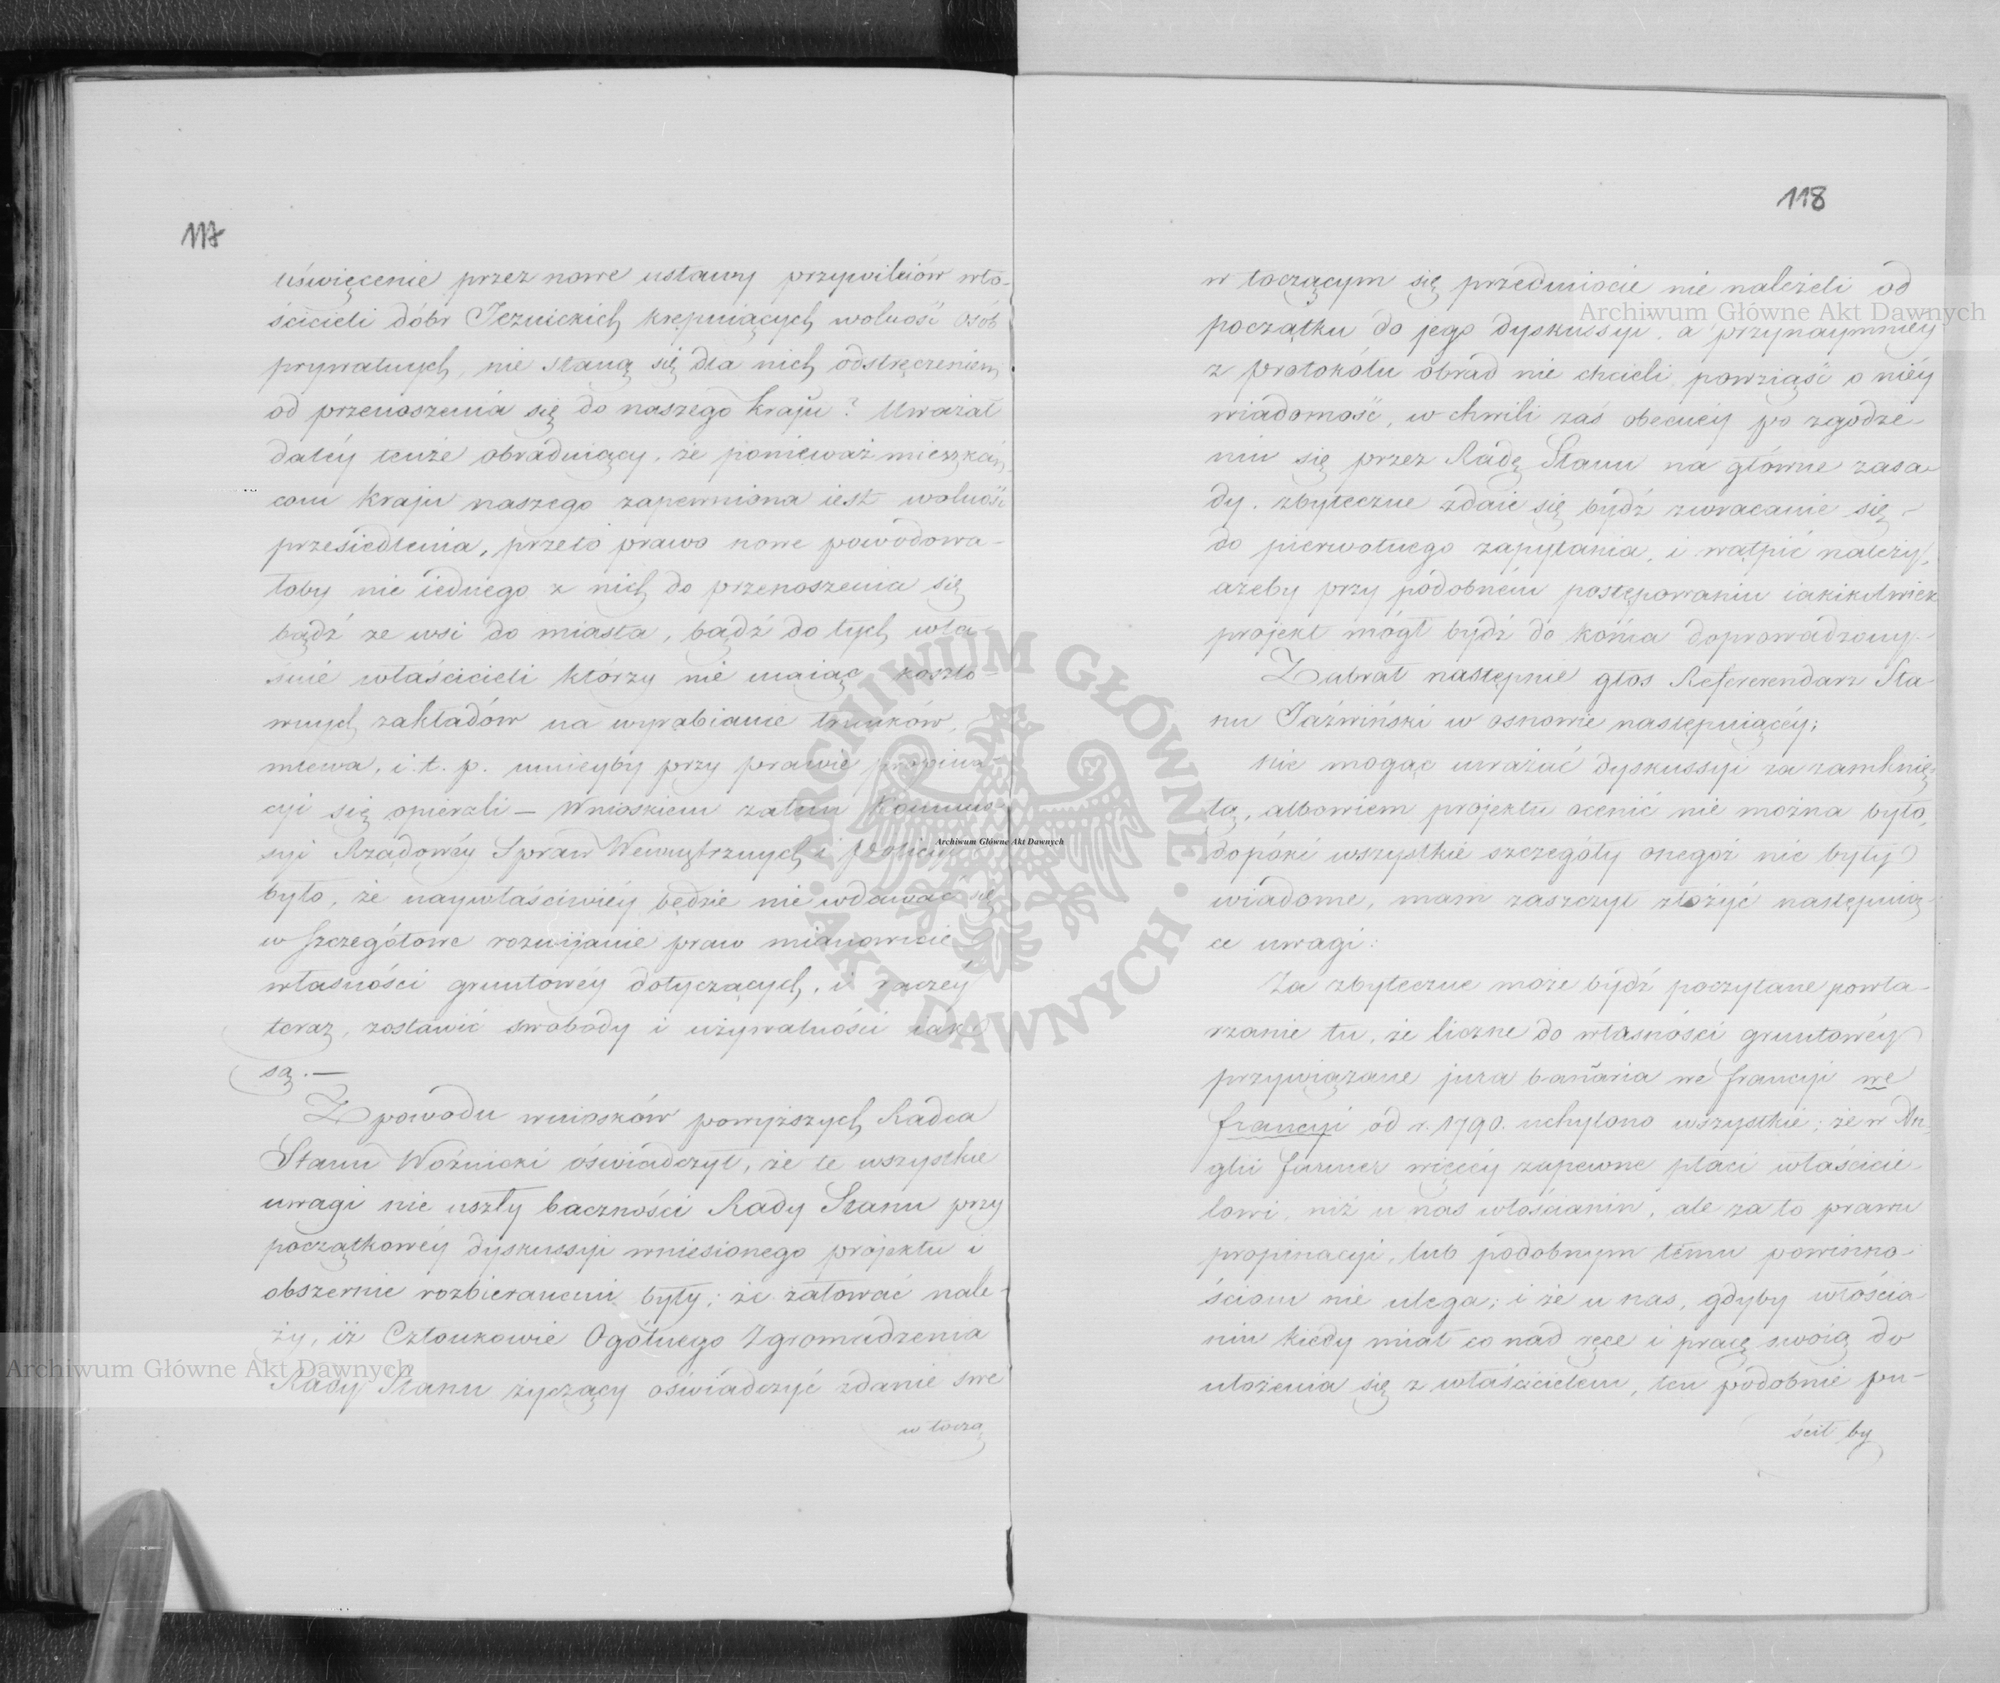 117
uświęcenie przez nowe ustawy przywileiów wło-
ścicieli dóbr Jezuickich, krępuiących wolność osób
prywatnych, nie staną się dla nich odstręczeniem
od przenoszenia się do naszego kraju? Uważał
daléy tenże obraduiący, że ponieważ mieszkań-
com kraju naszego zapewniona iest wolność
przesiedlenia, przeto prawo nowe powodowa-
łoby nie iednego z nich do przenoszenia się
bądź ze wsi do miasta, bądź do tych wła-
śnie właścicieli którzy nie maiąc koszto-
wnych zakładów na wyrabianie trunków,
mlewa, i. t. p. mnieyby przy prawie propina-
cyi się opierali — Wnioskiem zatem Kommis-
syi Rządowéy Spraw Wewnętrznych i Policyi
było, że naywłaściwiéy będzie nie wdawać się
w szczegółowe rozwijanie praw mianowicie
własności gruntowéy dotyczących, i raczéy
teraz, zostawić swobody i używalności iak
są. —
Z powodu wniosków powyższych Radca
Stanu Woźnicki oświadczył, że te wszystkie
uwagi nie uszły baczności Rady Stanu przy
początkowéy dyskussyi wniesionego projektu i
obszernie rozbieranemi były; że żałować nale-
ży, iż Członkowie Ogólnego Zgromadzenia
Rady Stanu życzący oświadczyć zdanie swe
w toczą
118
w toczącym się przedmiocie nie należeli od
początku do jego dyskussyi, a przynaymniéy
z protokółu obrad nie chcieli powziąść o niéy
wiadomość, w chwili zaś obecnéy po zgodze-
niu się przez Radę Stanu na główne zasa-
dy, zbyteczne zdaie się bydź zwracanie się
do pierwotnego zapytania, i wątpić należy,
ażeby przy podobném postępowaniu iakikolwiek
projekt mógł bydź do końca doprowadzony.
Zabrał następnie głos Refererendarz Sta-
nu Jaźwiński w osnowie następuiącéy:
Nie mogąc uważać dyskussyi za zamknię-
tą, albowiem projektu ocenić nie można było,
dopóki wszystkie szczegóły onegoż nie były
wiadome, mam zaszczyt złożyć następuią-
ce uwagi:
Za zbyteczne może bydź poczytane powta-
rzanie tu, że liczne do własności gruntowéy
przywiązane jura banaria we francyi we
francyi od r. 1790. uchylono wszystkie; że w An-
glii farmer więcéy zapewne płaci właścicie-
lowi, niż u nas włościanin, ale za to prawu
propinacyi, lub podobnym temu powinno-
ściom nie ulega; i że u nas, gdyby włościa-
nin kiedy miał co nad ręce i pracę swoią do
ułożenia się z właścicielem, ten podobnie pu-
ścił by
Archiwum Główne Akt Dawnych
Archiwum Główne Akt Dawnych
Archiwum Główne Akt Dawnych
ARCHIWUM GŁÓWNE · AKT DAWNYCH ·